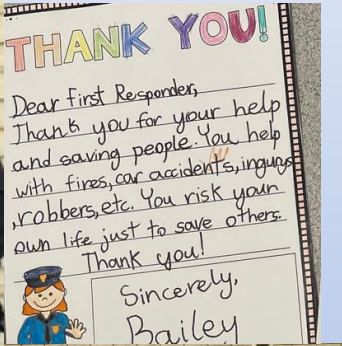 THANK YOU!
Dear First Responder,
Thank you for your help
and saving people. You help
with fires, car accidents, ingurys
, robbers, etc. You risk your
own life just to save others.
Thank you!
Sincerely,
Bailey